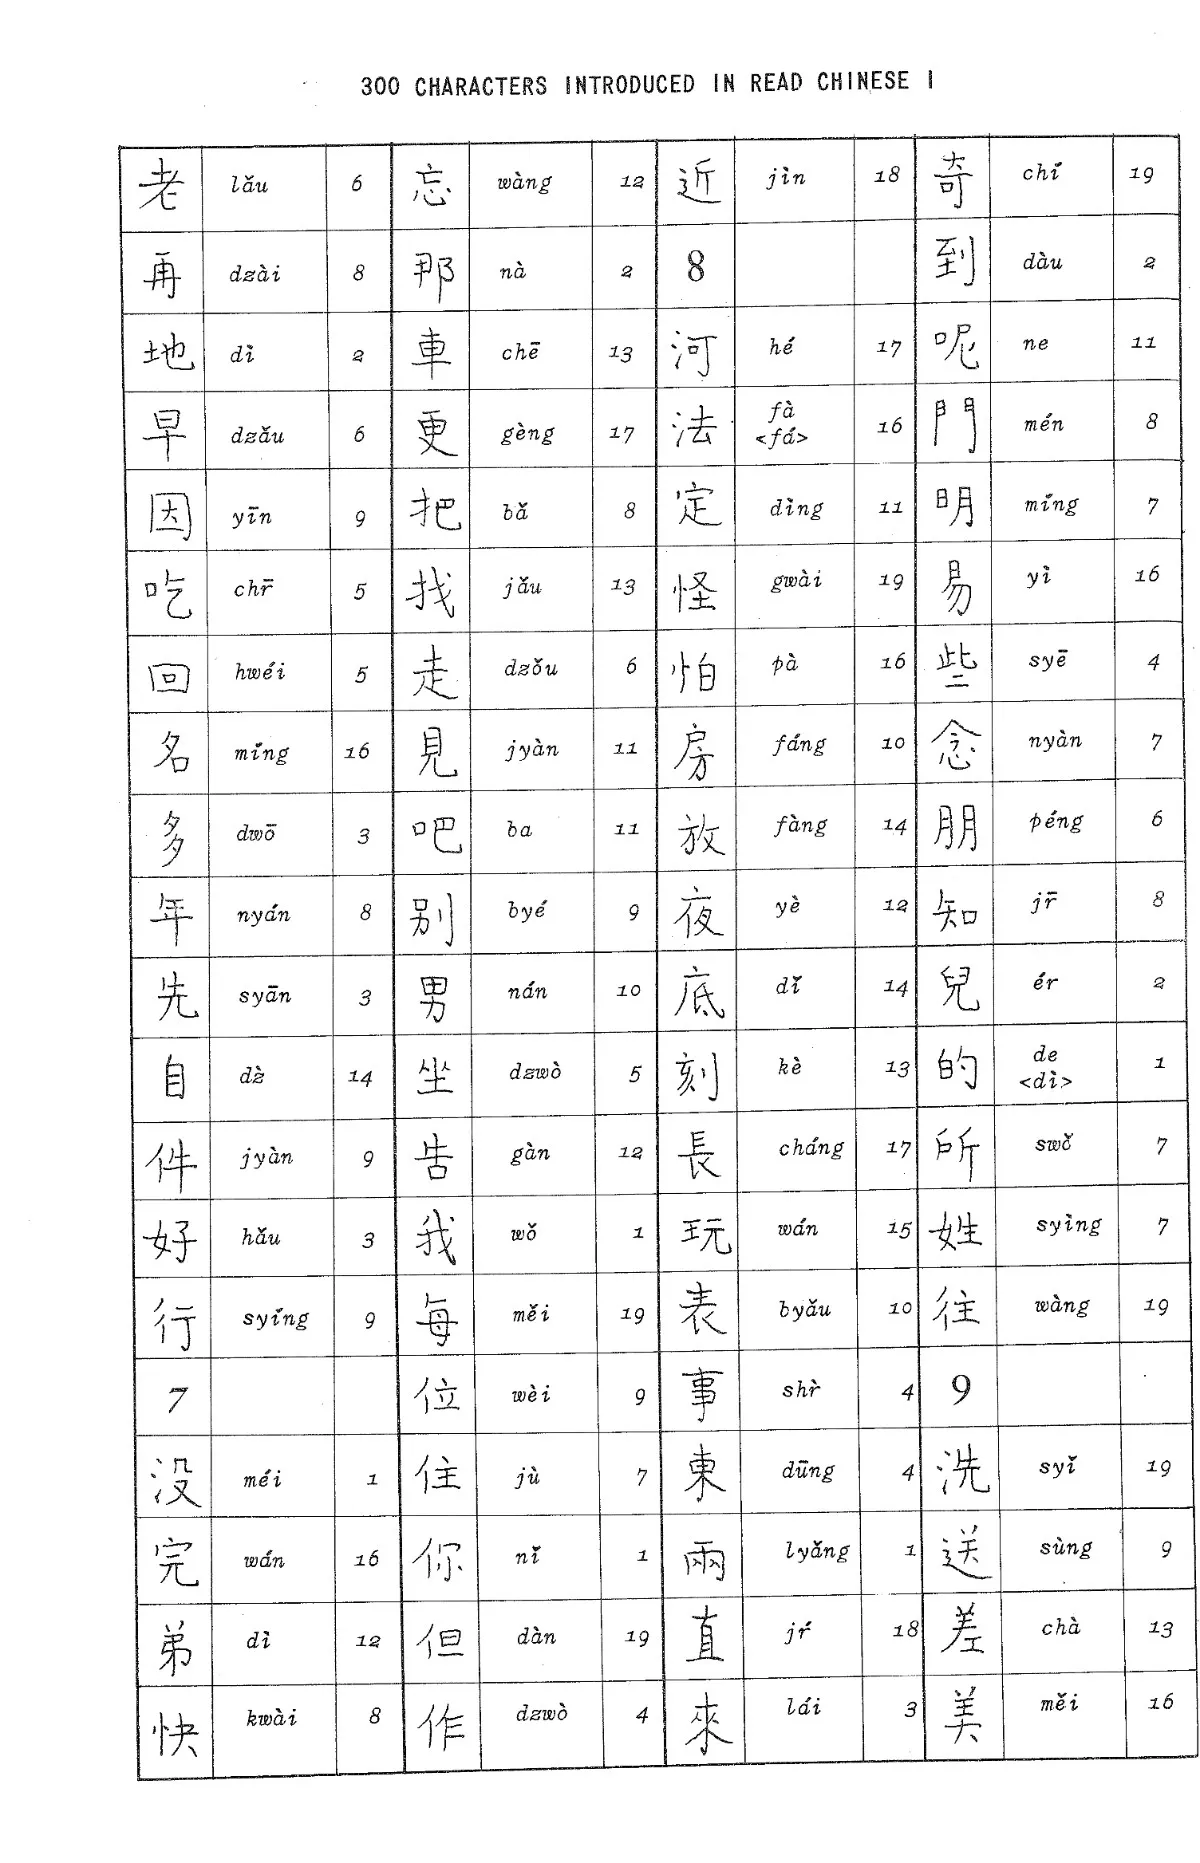 300 CHARACTERS INTRODUCED IN READ CHINESE I
老 lǎu 6
再 dzài 8
地 dì 2
早 dzǎu 6
因 yīn 9
吃 chr̄ 5
回 hwéi 5
名 míng 16
多 dwō 3
年 nyán 8
先 syān 3
自 dz̀ 14
件 jyàn 9
好 hǎu 3
行 syíng 9
7
没 méi 1
完 wán 16
弟 dì 12
快 kwài 8
忘 wàng 12
那 nà 2
車 chē 13
更 gèng 17
把 bǎ 8
找 jǎu 13
走 dzǒu 6
見 jyàn 11
吧 ba 11
別 byé 9
男 nán 10
坐 dzwò 5
告 gàn 12
我 wǒ 1
每 měi 19
位 wèi 9
住 jù 7
你 nǐ 1
但 dàn 19
作 dzwò 4
近 jìn 18
8
河 hé 17
法 fà <fá> 16
定 dìng 11
怪 gwài 19
怕 pà 16
房 fáng 10
放 fàng 14
夜 yè 12
底 dǐ 14
刻 kè 13
長 cháng 17
玩 wán 15
表 byǎu 10
事 shr̀ 4
東 dūng 4
兩 lyǎng 1
直 jŕ 18
來 lái 3
奇 chí 19
到 dàu 2
呢 ne 11
門 mén 8
明 míng 7
易 yì 16
些 syē 4
念 nyàn 7
朋 péng 6
知 jr̄ 8
兒 ér 2
的 de <dì> 1
所 swǒ 7
姓 syìng 7
往 wàng 19
9
洗 syǐ 19
送 sùng 9
差 chà 13
美 měi 16